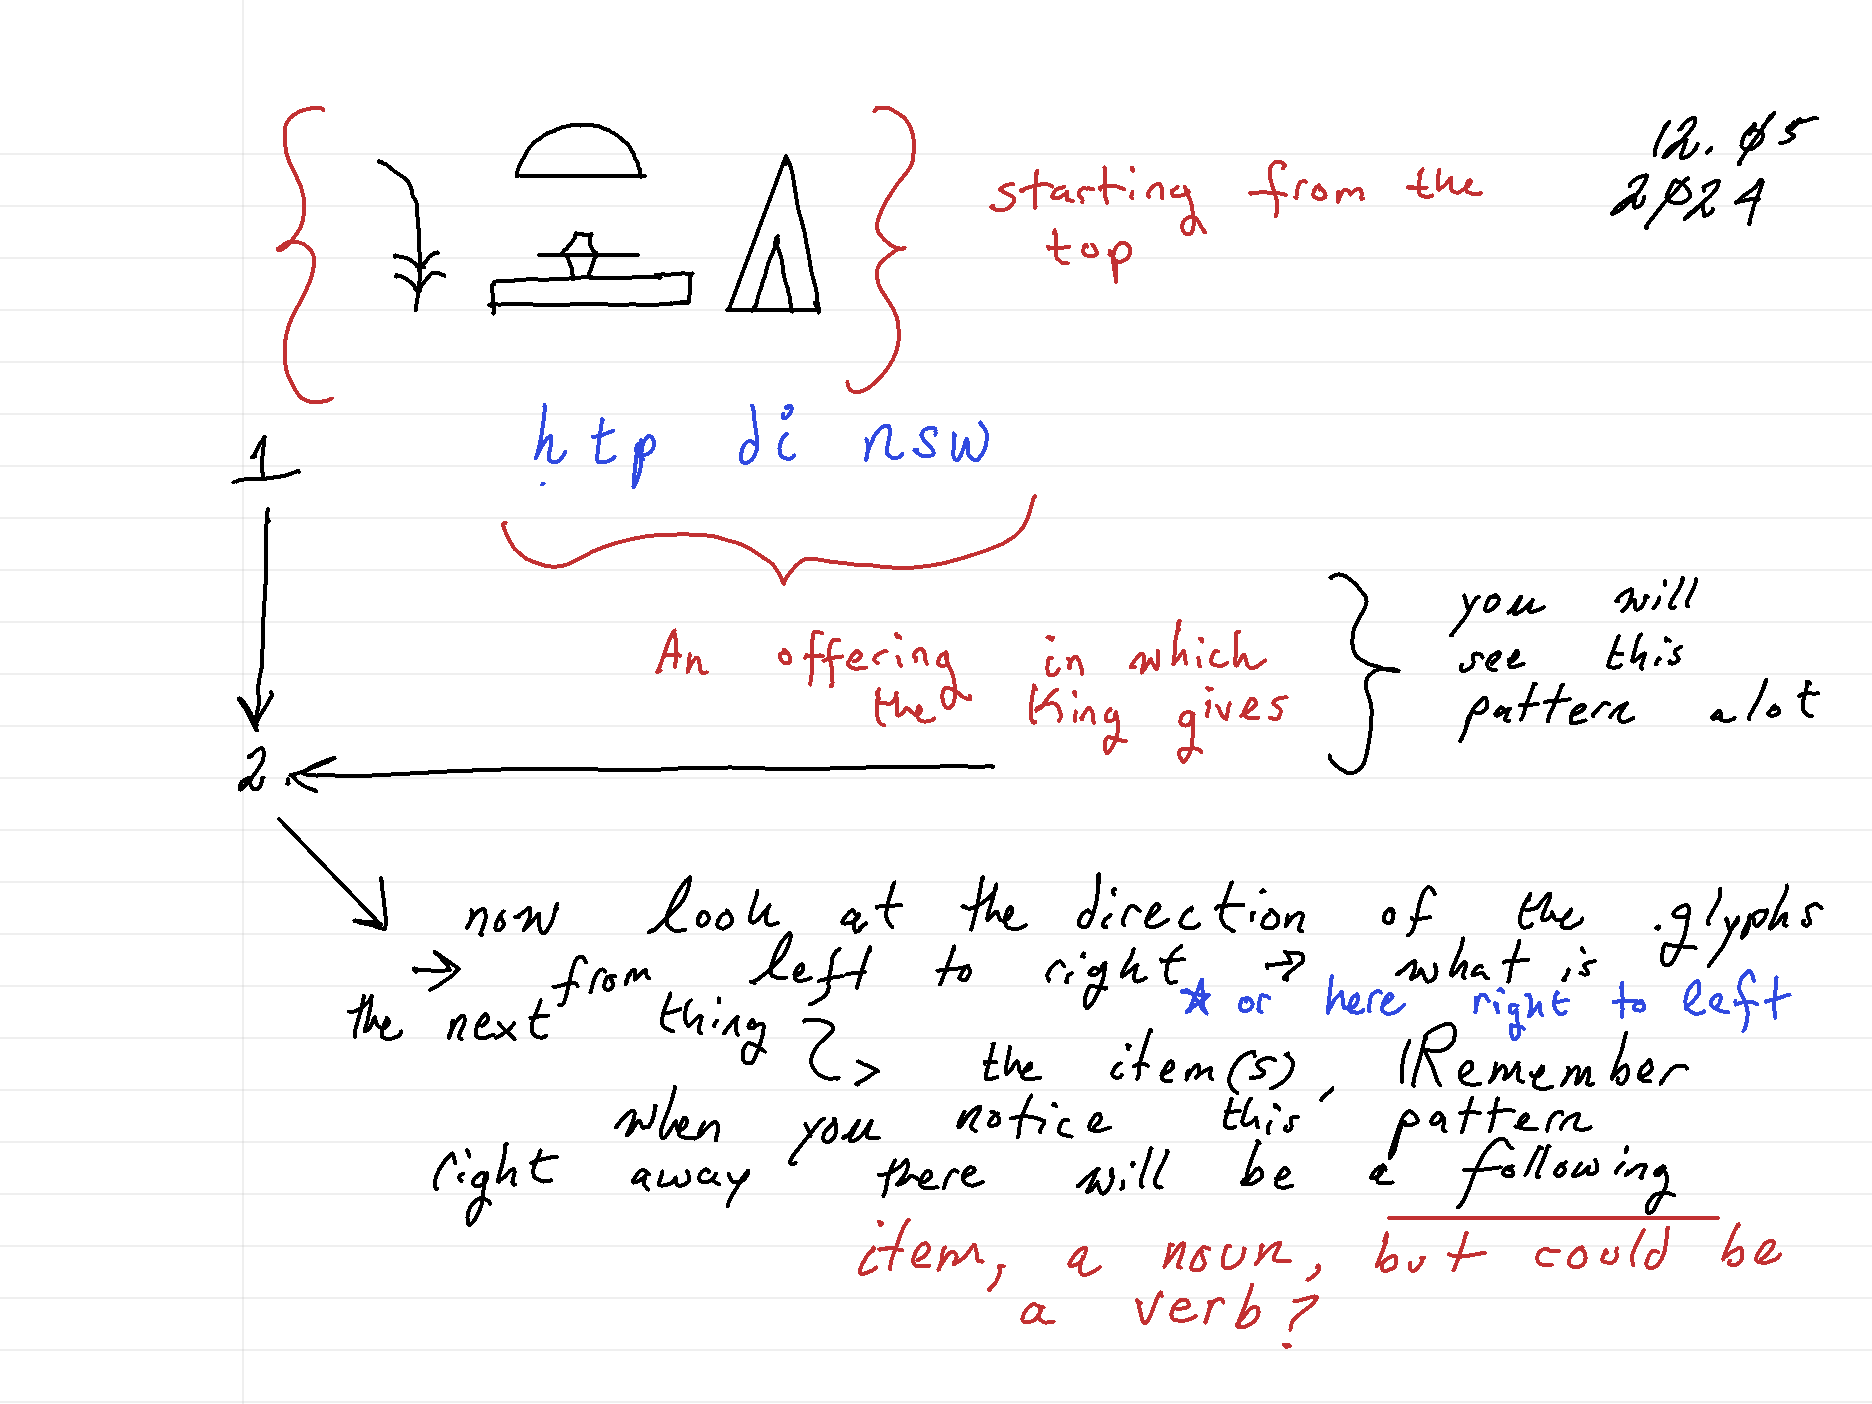 𓇓𓏏𓊵𓏙
starting from the
top
12.05
2024
1
ḥtp di nsw
An offering in which
the King gives
you will
see this
pattern alot
2.
now look at the direction of the glyphs
→ from left to right → what is
* or here right to left
the next thing
> the item(s), Remember
when you notice this pattern
right away there will be a following
item, a noun, but could be
a verb?